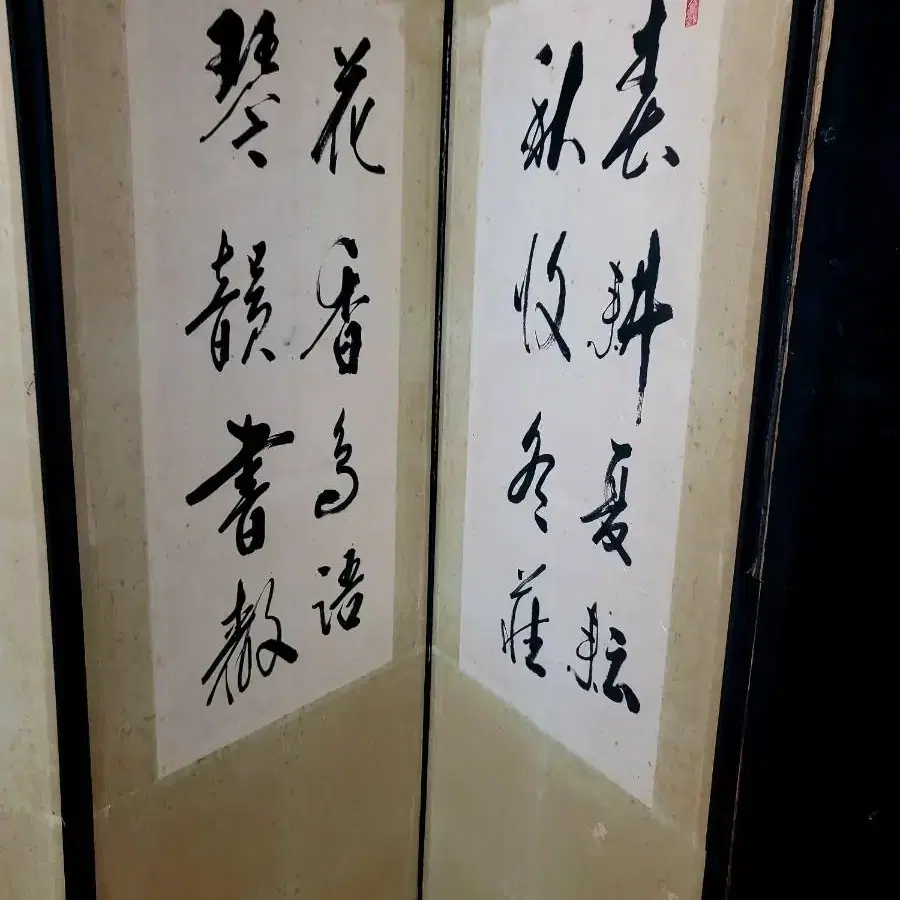 春耕夏耘
秋收冬藏
花香鳥語
琴韻書聲